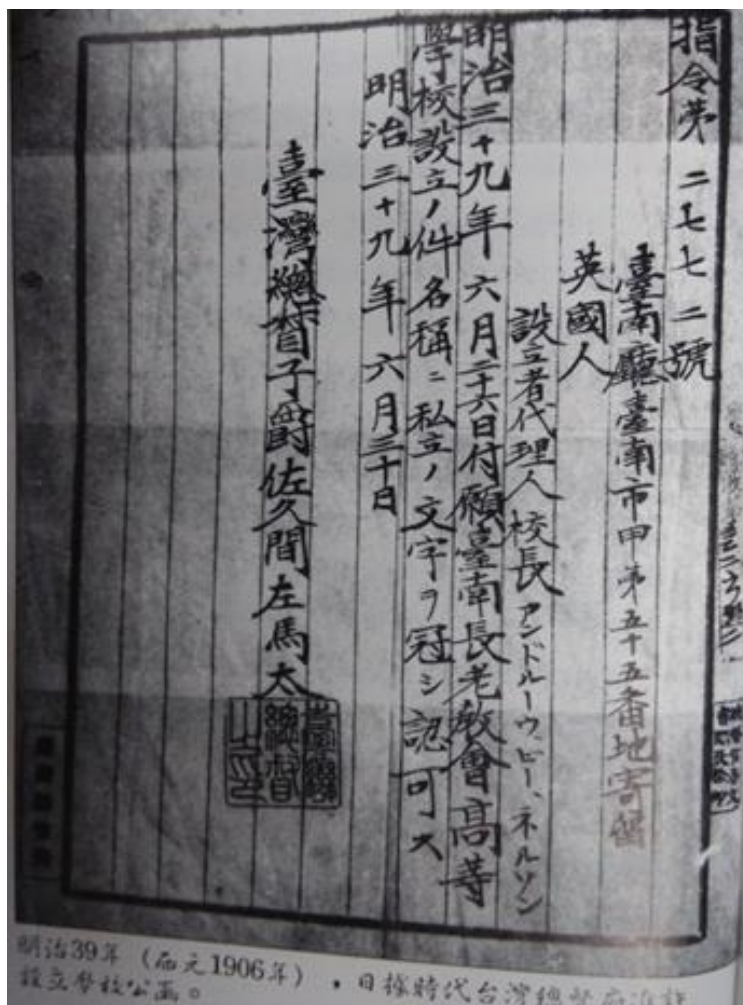 指令第二七七二號
臺南廳臺南市甲第五十五番地寄留
英國人
設立者代理人校長アンドルーウ、ビー、ネルソン
明治三十九年六月二十六日付願臺南長老敎會高等
學校設立ノ件名稱ニ私立ノ文字ヲ冠シ認可ス
明治三十九年六月三十日
臺灣總督子爵佐久間左馬太
臺灣總督之印
明治39年（西元1906年），日據時代台灣總督府准許
設立學校公函。